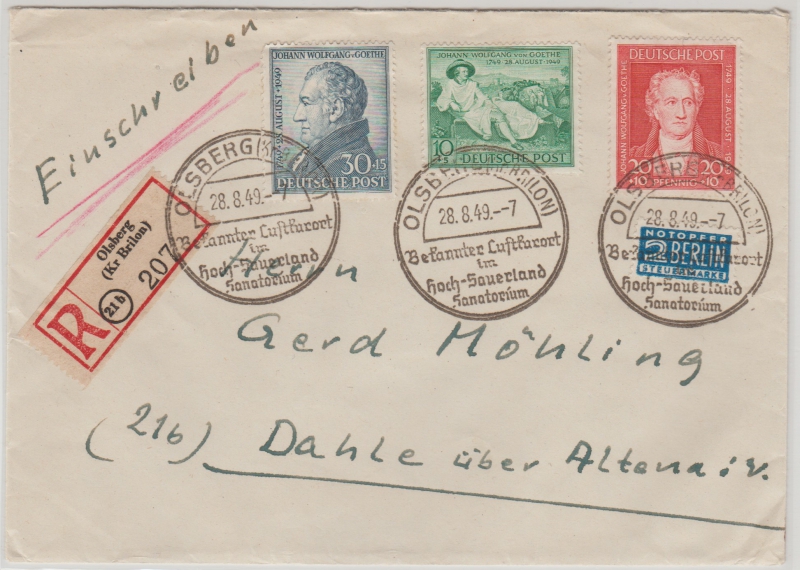 Einschreiben
JOHANN WOLFGANG v. GOETHE
1749 · 28. AUGUST · 1949
30+15
DEUTSCHE POST
JOHANN WOLFGANG VON GOETHE
1749 · 28. AUGUST · 1949
10
+5
DEUTSCHE POST
DEUTSCHE POST
JOHANN WOLFGANG VON GOETHE
1749 · 28 AUGUST
20 20
+10 PFENNIG +10
R
Olsberg
(Kr Brilon)
21 b
207
OLSBERG
28.8.49.--7
Bekannter Luftkurort
im
Hoch-Sauerland
Sanatorium
OLSBERG (KR. BRILON)
28.8.49.--7
Bekannter Luftkurort
im
Hoch-Sauerland
Sanatorium
OLSBERG (KR. BRILON)
28.8.49.--7
Bekannter Luftkurort
im
Hoch-Sauerland
Sanatorium
NOTOPFER
2 BERLIN
STEUERMARKE
Herrn
Gerd Möhling
(21b) Dahle über Altena i. W.